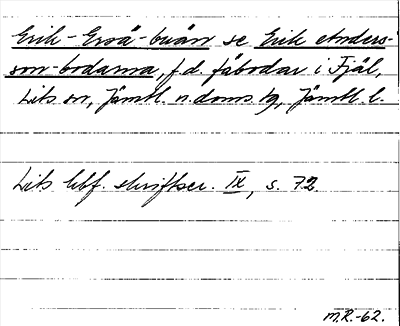 Erik-Ersä-buän se Erik Anders-
son-bodarna, f.d. fäbodar i Fjäl,
Lits sn, Jämtl. n. doms. tg, Jämtl. l.
Lits hbf. skriftser. IX, s. 72.
M.R.-62.